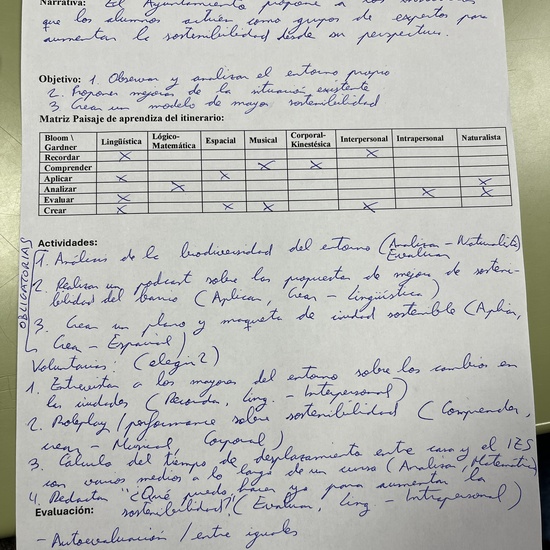 Narrativa: El Ayuntamiento propone a los
que los alumnos actúen como grupos de expertos para
aumentar la sostenibilidad desde su perspectiva.
Objetivo: 1. Observar y analizar el entorno propio
2. Proponer mejoras de la situación existente
3 Crear un modelo de mayor sostenibilidad
Matriz Paisaje de aprendiza del itinerario:
Bloom \ Gardner Lingüística Lógico-Matemática Espacial Musical Corporal-Kinestésica Interpersonal Intrapersonal Naturalista
Recordar X X
Comprender X X
Aplicar X X X
Analizar X X X
Evaluar X
Crear X X X X
OBLIGATORIAS
Actividades:
1. Análisis de la biodiversidad del entorno (Analizar - Naturalista)
Evaluar
2. Realizar un podcast sobre las propuestas de mejora de sosteni-
bilidad del barrio (Aplicar, Crear - Lingüística)
3. Crear un plano y maqueta de ciudad sostenible (Aplicar,
Crear - Espacial)
Voluntarias: (elegir 2)
1. Entrevistar a los mayores del entorno sobre los cambios en
la ciudades (Recordar, Ling. - Interpersonal)
2. Roleplay / performance sobre sostenibilidad (Comprender,
crear - Musical, Corporal)
3. Cálculo del tiempo de desplazamiento entre casa y el IES
con varios medios a lo largo de un curso (Analizar, Matemática)
4. Redactar "¿Qué puedo hacer yo para aumentar la
sostenibilidad? (Evaluar, Ling - Intrapersonal)
Evaluación:
- Autoevaluación / entre iguales